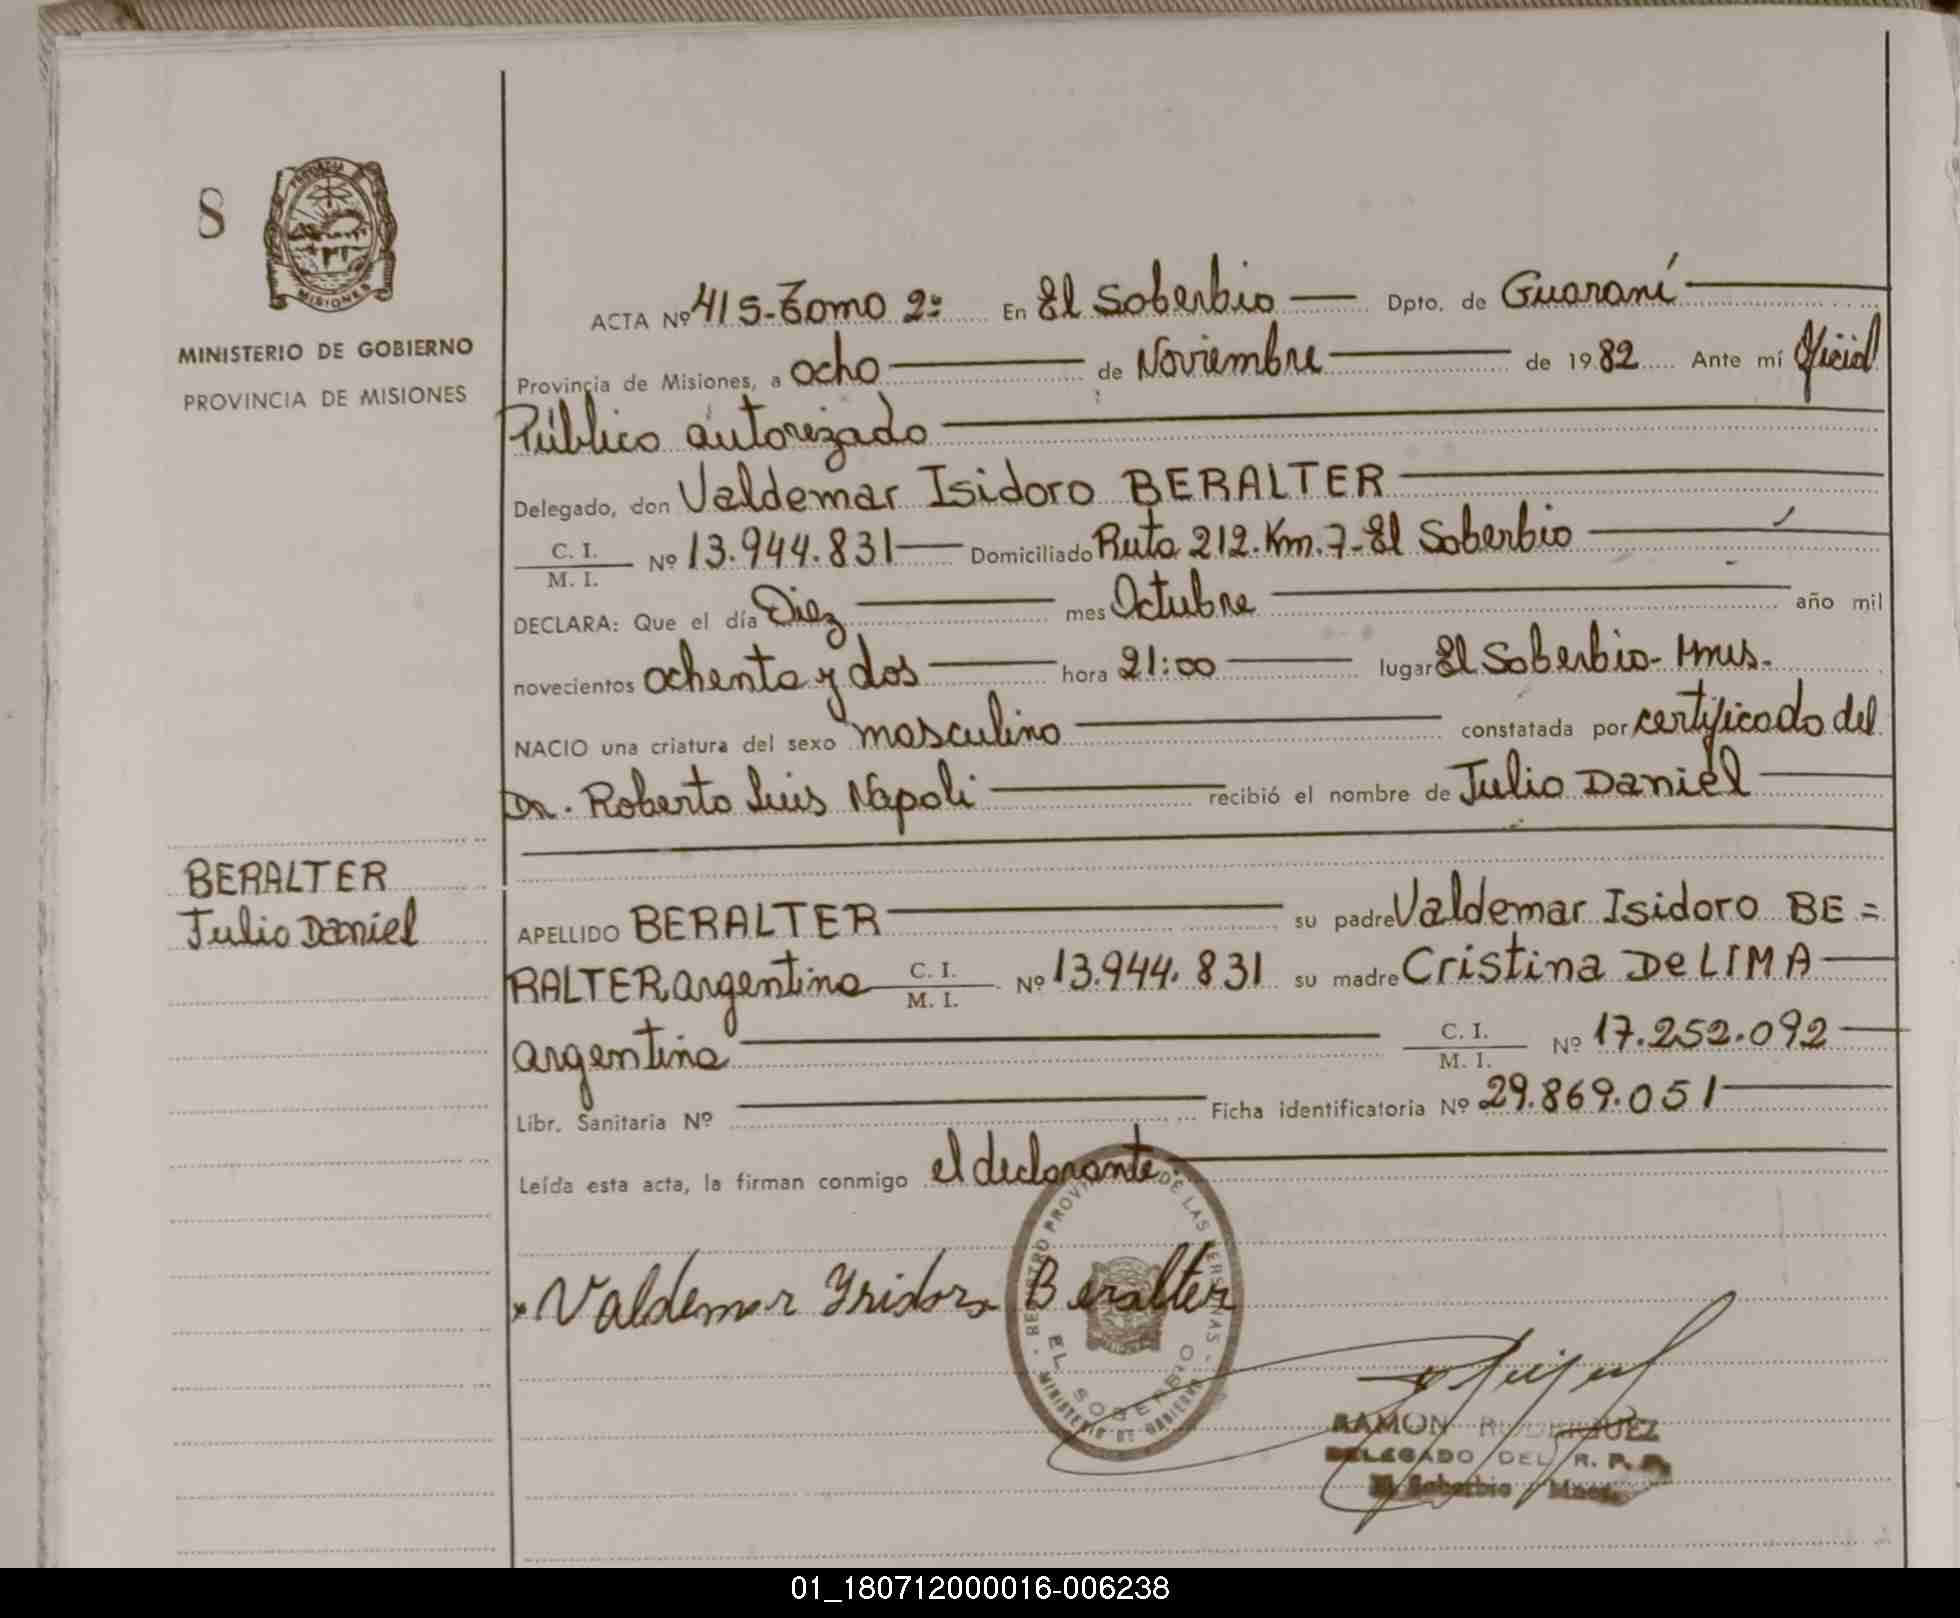 8
PROVINCIA
MISIONES
MINISTERIO DE GOBIERNO
PROVINCIA DE MISIONES
ACTA Nº 415-Tomo 2º En El Soberbio Dpto. de Guaraní
Provincia de Misiones, a ocho de Noviembre de 1982 Ante mí Oficial
Público autorizado
Delegado, don Valdemar Isidoro BERALTER
C. I.
M. I. Nº 13.944.831 Domiciliado Ruta 212-Km.7-El Soberbio
DECLARA: Que el día Diez mes Octubre año mil
novecientos ochenta y dos hora 21:00 lugar El Soberbio- Mnes.
NACIO una criatura del sexo masculino constatada por certificado del
Dr. Roberto Luis Napoli recibió el nombre de Julio Daniel
BERALTER
Julio Daniel
APELLIDO BERALTER su padre Valdemar Isidoro BE=
RALTER argentino C. I. M. I. Nº 13.944.831 su madre Cristina De LIMA
argentina C. I. M. I. Nº 17.252.092
Libr. Sanitaria Nº Ficha identificatoria Nº 29.869.051
Leída esta acta, la firman conmigo el declarante
Valdemar Isidoro Beralter
DE LAS PERSONAS
EL SOBERBIO
MINISTERIO DE GOBIERNO
RAMON RODRIGUEZ
DELEGADO DEL R. P. P.
El Soberbio Mnes.
01_180712000016-006238